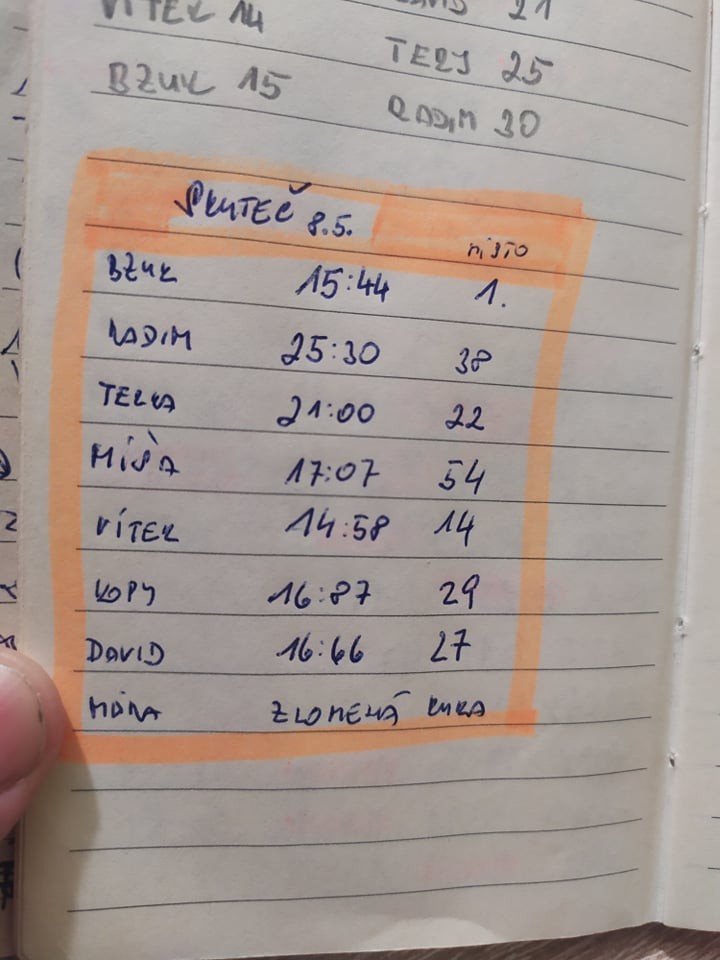 VÍTEK 14 DAVID 21
TERY 25
BZUK 15
RADIM 30
SKUTEČ 8.5.
místo
BZUK 15:44 1.
RADIM 25:30 38
TERKA 21:00 22
MÍŠA 17:07 54
VÍTEK 14:58 14
KOPY 16:87 29
DAVID 16:66 27
MÁRA ZLOMENÁ RUKA